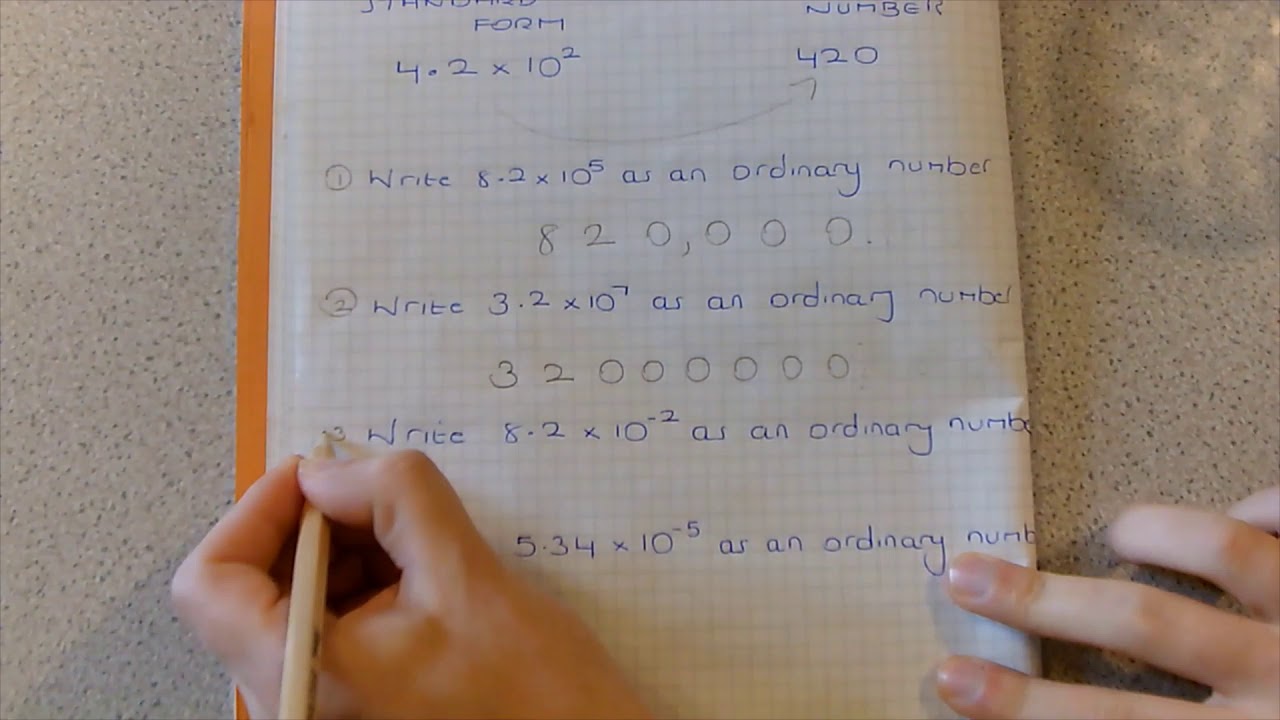 STANDARD NUMBER
FORM
4.2 × 10² 420
① Write 8.2 × 10⁵ as an ordinary number
8 2 0,0 0 0.
② Write 3.2 × 10⁷ as an ordinary number
3 2 0 0 0 0 0 0
3 Write 8.2 × 10⁻² as an ordinary numbe
5.34 × 10⁻⁵ as an ordinary numb